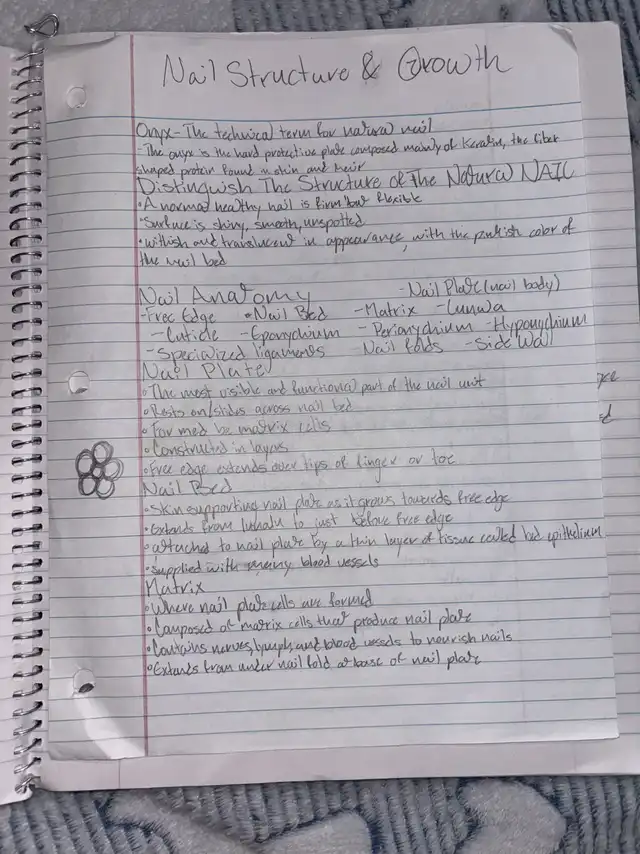 Nail Structure & Growth
Onyx - The technical term for natural nail
- The onyx is the hard protective plate composed mainly of Keratin, the fiber
shaped protein found in skin and hair
Distinguish The Structure of The Natural NAIL
• A normal healthy nail is firm but flexible
• Surface is shiny, smooth, unspotted
• whitish and translucent in appearance, with the pinkish color of
the nail bed
Nail Anatomy - Nail Plate (nail body)
- Free Edge • Nail Bed - Matrix - Lunula
- Cuticle - Eponychium - Perionychium - Hyponychium
- Specialized ligaments - Nail folds - Side Wall
Nail Plate
• The most visible and functional part of the nail unit
• Rests on/slides across nail bed
• Formed be matrix cells
• Constructed in layers
• Free edge extends over tips of finger or toe
Nail Bed
• Skin supporting nail plate as it grows towards free edge
• Extends from lunula to just before free edge
• attached to nail plate by a thin layer of tissue called bed epithelium
• Supplied with many blood vessels
Matrix
• Where nail plate cells are formed
• Composed of matrix cells that produce nail plate
• Contains nerves, lymph, and blood vessels to nourish nails
• Extends from under nail fold at base of nail plate